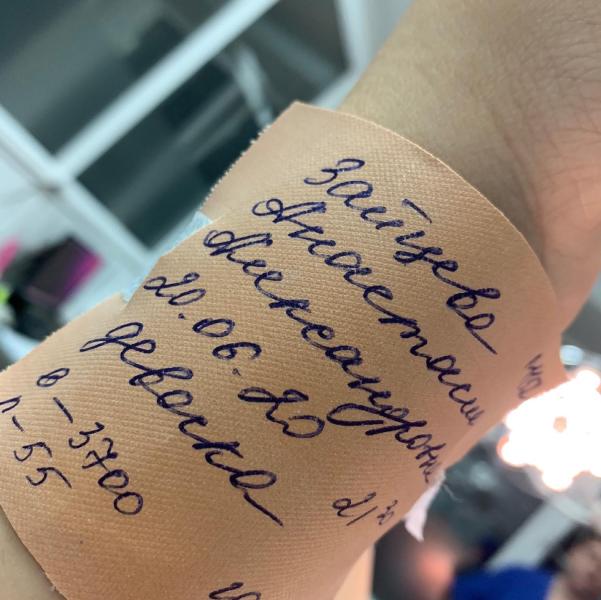 Зайцева
Анастасия
Александровна
20.06.20
девочка
21 30
в – 3700
р – 55